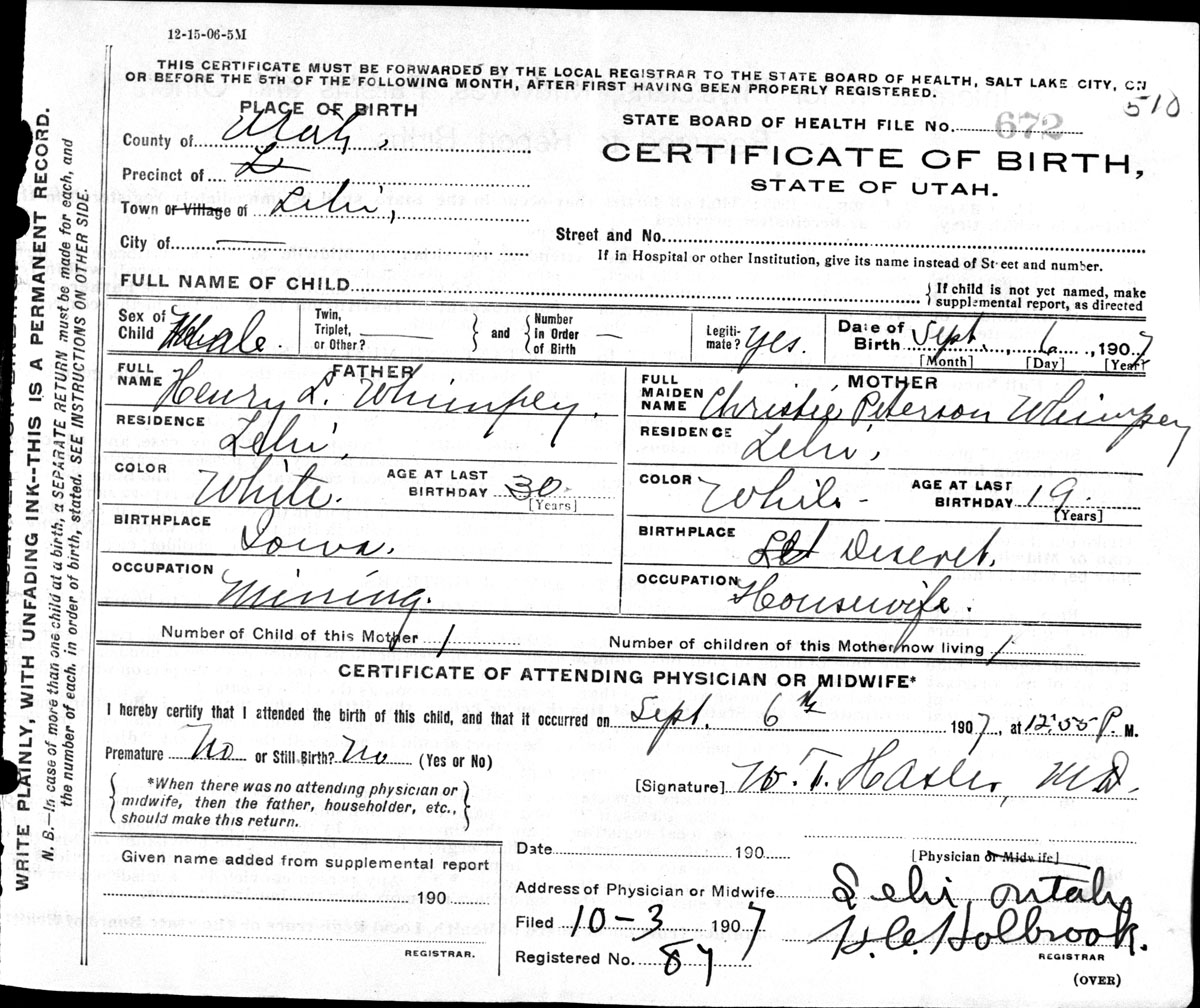 12-15-06-5M
THIS CERTIFICATE MUST BE FORWARDED BY THE LOCAL REGISTRAR TO THE STATE BOARD OF HEALTH, SALT LAKE CITY, ON
OR BEFORE THE 5TH OF THE FOLLOWING MONTH, AFTER FIRST HAVING BEEN PROPERLY REGISTERED.
510
PLACE OF BIRTH
STATE BOARD OF HEALTH FILE No. 672
County of Utah,
CERTIFICATE OF BIRTH,
Precinct of L
STATE OF UTAH.
Town or Village of Lehi,
City of —
Street and No.
If in Hospital or other Institution, give its name instead of Street and number.
FULL NAME OF CHILD
If child is not yet named, make
supplemental report, as directed
Sex of Child Male
Twin, Triplet, or Other? —
and
Number in Order of Birth —
Legiti-mate? Yes.
Date of Birth Sept. 6, 1907
[Month] [Day] [Year]
FATHER
FULL NAME Henry L. Whimpey.
RESIDENCE Lehi,
COLOR White.
AGE AT LAST BIRTHDAY 30.
[Years]
BIRTHPLACE Iowa.
OCCUPATION Mining.
MOTHER
FULL MAIDEN NAME Christie Peterson Whimpey
RESIDENCE Lehi,
COLOR White
AGE AT LAST BIRTHDAY 19.
[Years]
BIRTHPLACE Deseret.
OCCUPATION Housewife.
Number of Child of this Mother 1
Number of children of this Mother now living 1
CERTIFICATE OF ATTENDING PHYSICIAN OR MIDWIFE*
I hereby certify that I attended the birth of this child, and that it occurred on Sept. 6th 1907, at 12:55 P. M.
Premature No or Still Birth? No (Yes or No)
*When there was no attending physician or
midwife, then the father, householder, etc.,
should make this return.
[Signature] W. T. Hasler, M.D.
[Physician or Midwife]
Given name added from supplemental report
190
REGISTRAR.
Date 190
Address of Physician or Midwife Lehi, Utah,
Filed 10-3 1907
H. C. Holbrook.
REGISTRAR
Registered No. 87
(OVER)
WRITE PLAINLY, WITH UNFADING INK--THIS IS A PERMANENT RECORD.
N. B.—In case of more than one child at a birth, a SEPARATE RETURN must be made for each, and
the number of each, in order of birth, stated. SEE INSTRUCTIONS ON OTHER SIDE.